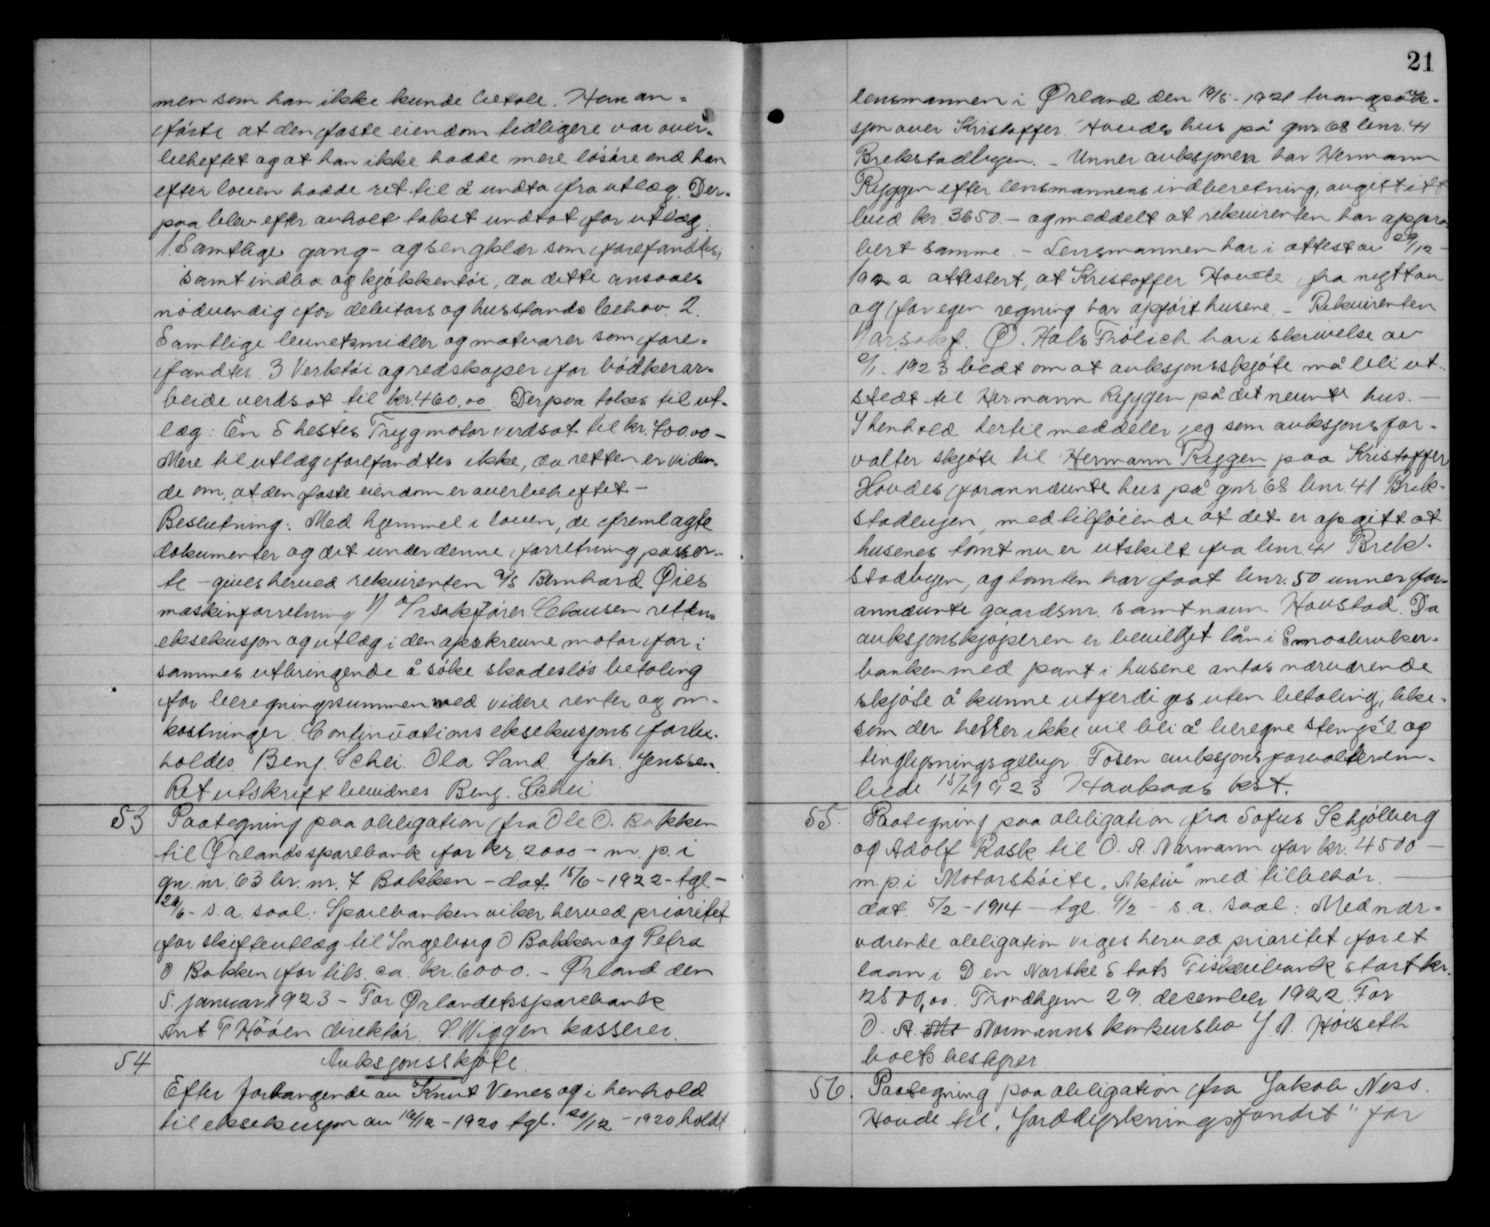 men som han ikke kunde betale. Han an-
førte at den faste eiendom tidligere var over-
beheftet og at han ikke hadde mere løsøre end han
efter loven hadde ret til å undta fra utlæg. Der-
paa blev efter avholt takst undtat for utlæg.
1. Samtlige gang- og sengklær som forefandtes,
samt indbo og kjøkkentøi, da dette ansaaes
nødvendig for debitors og husstands behov. 2.
Samtlige levnetsmidler og matvarer som fore-
fandtes. 3 Verktøi og redskaper for bødkerar-
beide verdsat til kr. 460,00 Derpaa tokes til ut-
læg: En 5 hestes Trygmotor verdsat til kr. 700.00 -
Mere til utlæg forefandtes ikke, da retten er viden-
de om, at den faste eiendom er overbeheftet -
Beslutning: Med hjemmel i loven, de fremlagte
dokumenter og det under denne forretning passer-
te - gives herved rekvirenten A/S Bernhard Øies
maskinforretning v/ O.r.sakfører Clausen rettens
eksekusjon og utlæg i den opskrevne motor for i
sammes utbringende å søke skadesløs betaling
for beregningssummen med videre renter og om-
kostninger. Continuations eksekusjons forbe-
holdes Benj. Schei Ola Sand Joh. Jenssen.
Ret utskrift bevidnes Benj. Schei
53 Paategning paa obligation fra Ole O. Bakken
til Ørlands sparebank for kr. 2000 - m. p. i
gn. nr. 63 br. nr. 7 Bakken - dat. 15/6 - 1922 - tgl -
24/6 - s.a. saal: Sparebanken viker herved prioritet
for skifteutlæg til Ingeborg O Bakken og Petra
O Bakken for tils. ca. kr. 6000. - Ørland den
5. januar 1923 - For Ørlandets sparebank
Ant T Hööen direktör. S. Wiggen kasserer.
54 Auksjonsskjøte.
Efter forlangende av Knut Venes og i henhold
til eksekusjon av 16/12 - 1920 tgl. 20/12 - 1920 holdt
21
lensmannen i Ørland den 12/5 - 1921 tvangsauk-
sjon over Kristoffer Hovdes hus på gnr. 68 bnr. 41
Brekstadbygen. - Unner auksjonen har Hermann
Ryggen efter lensmannens indberetning, avgitt et
bud kr. 3650 - og meddelt at rekvirenten har appro-
bert samme. - Lensmannen har i attest av 29/12 -
1922 attestert, at Kristoffer Hovde fra nytt av
og for egen regning har opført husene. - Rekvirenten
O.r.sakf. O. Hals Frölich har i skrivelse av
2/1. 1923 bedt om at auksjonsskjøte må bli ut-
stedt til Hermann Ryggen på det nevnte hus. -
I henhold hertil meddeler jeg som auksjonsfor-
valter skjøte til Hermann Ryggen paa Kristoffer
Hovdes forannævnte hus på gnr 68 bnr. 41 Brek-
stadbygen, med tilføiende at det er opgitt at
husenes tomt nu er utskilt fra bnr. 41 Brek-
stadbygen, og tomten har faat bnr. 50 unner for-
annævnte gaardsnr. samt navn Havstad. Da
auksjonskjøperen er bevilget lån i Småbruker-
banken med pant i husene antas nærværende
skjøte å kunne utferdiges uten betaling, like-
som der heller ikke vil bli å beregne stempel og
tinglysningsgebyr. Fosen auksjonsforvalterem-
bede 15/1 1923 Haakaas kst.
55. Paategning paa obligation fra Sofus Schjølberg
og Adolf Rask til O. A. Normann for kr. 4500 -
m.p. i Motorskøite "Aktiv" med tilbehør. -
dat. 5/2 - 1914 - tgl. 9/2 - s.a. saal: Med nær-
værende obligation viges herved prioritet for et
laan i Den Norske Stats Fiskeribank stort kr.
2500,00. Trondhjem 29. december 1922. For
O. A. Normanns konkursbo J. N. Houseth
boets bestyrer
56. Paategning paa obligation fra Jakob Ness
Hovde til "Jorddyrkningsfondet" for